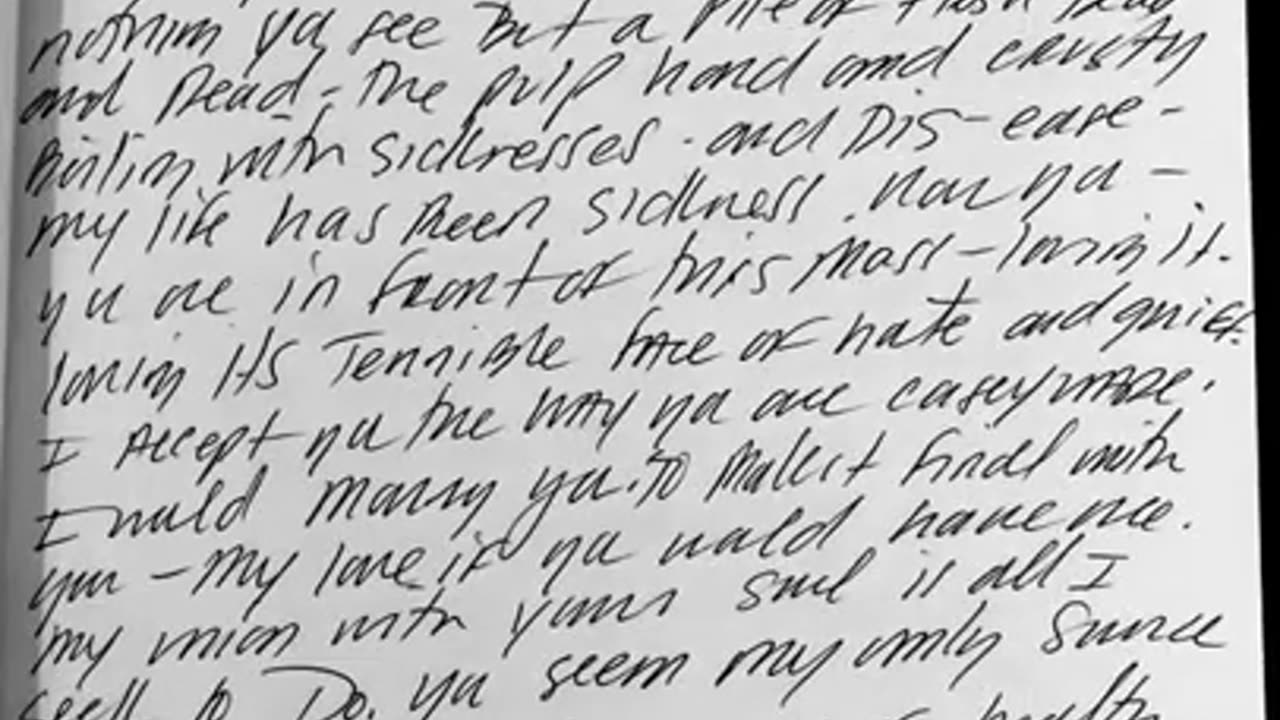 nothim ya see But a pile of flesh Dead
and Dead - The pulp hand and crusty
Boilin with sicknesses . and Dis-ease -
my life has Been sickness . now ya -
yu are in front of this Mass - lovin it.
lovin its Terrible face of hate and grief.
I Accept ya the way ya are casey wade.
I would marry ya. To Make it final with
you - My love if ya would have me.
my union with yours soul is all I
seek to Do. yu seem my only Source
health